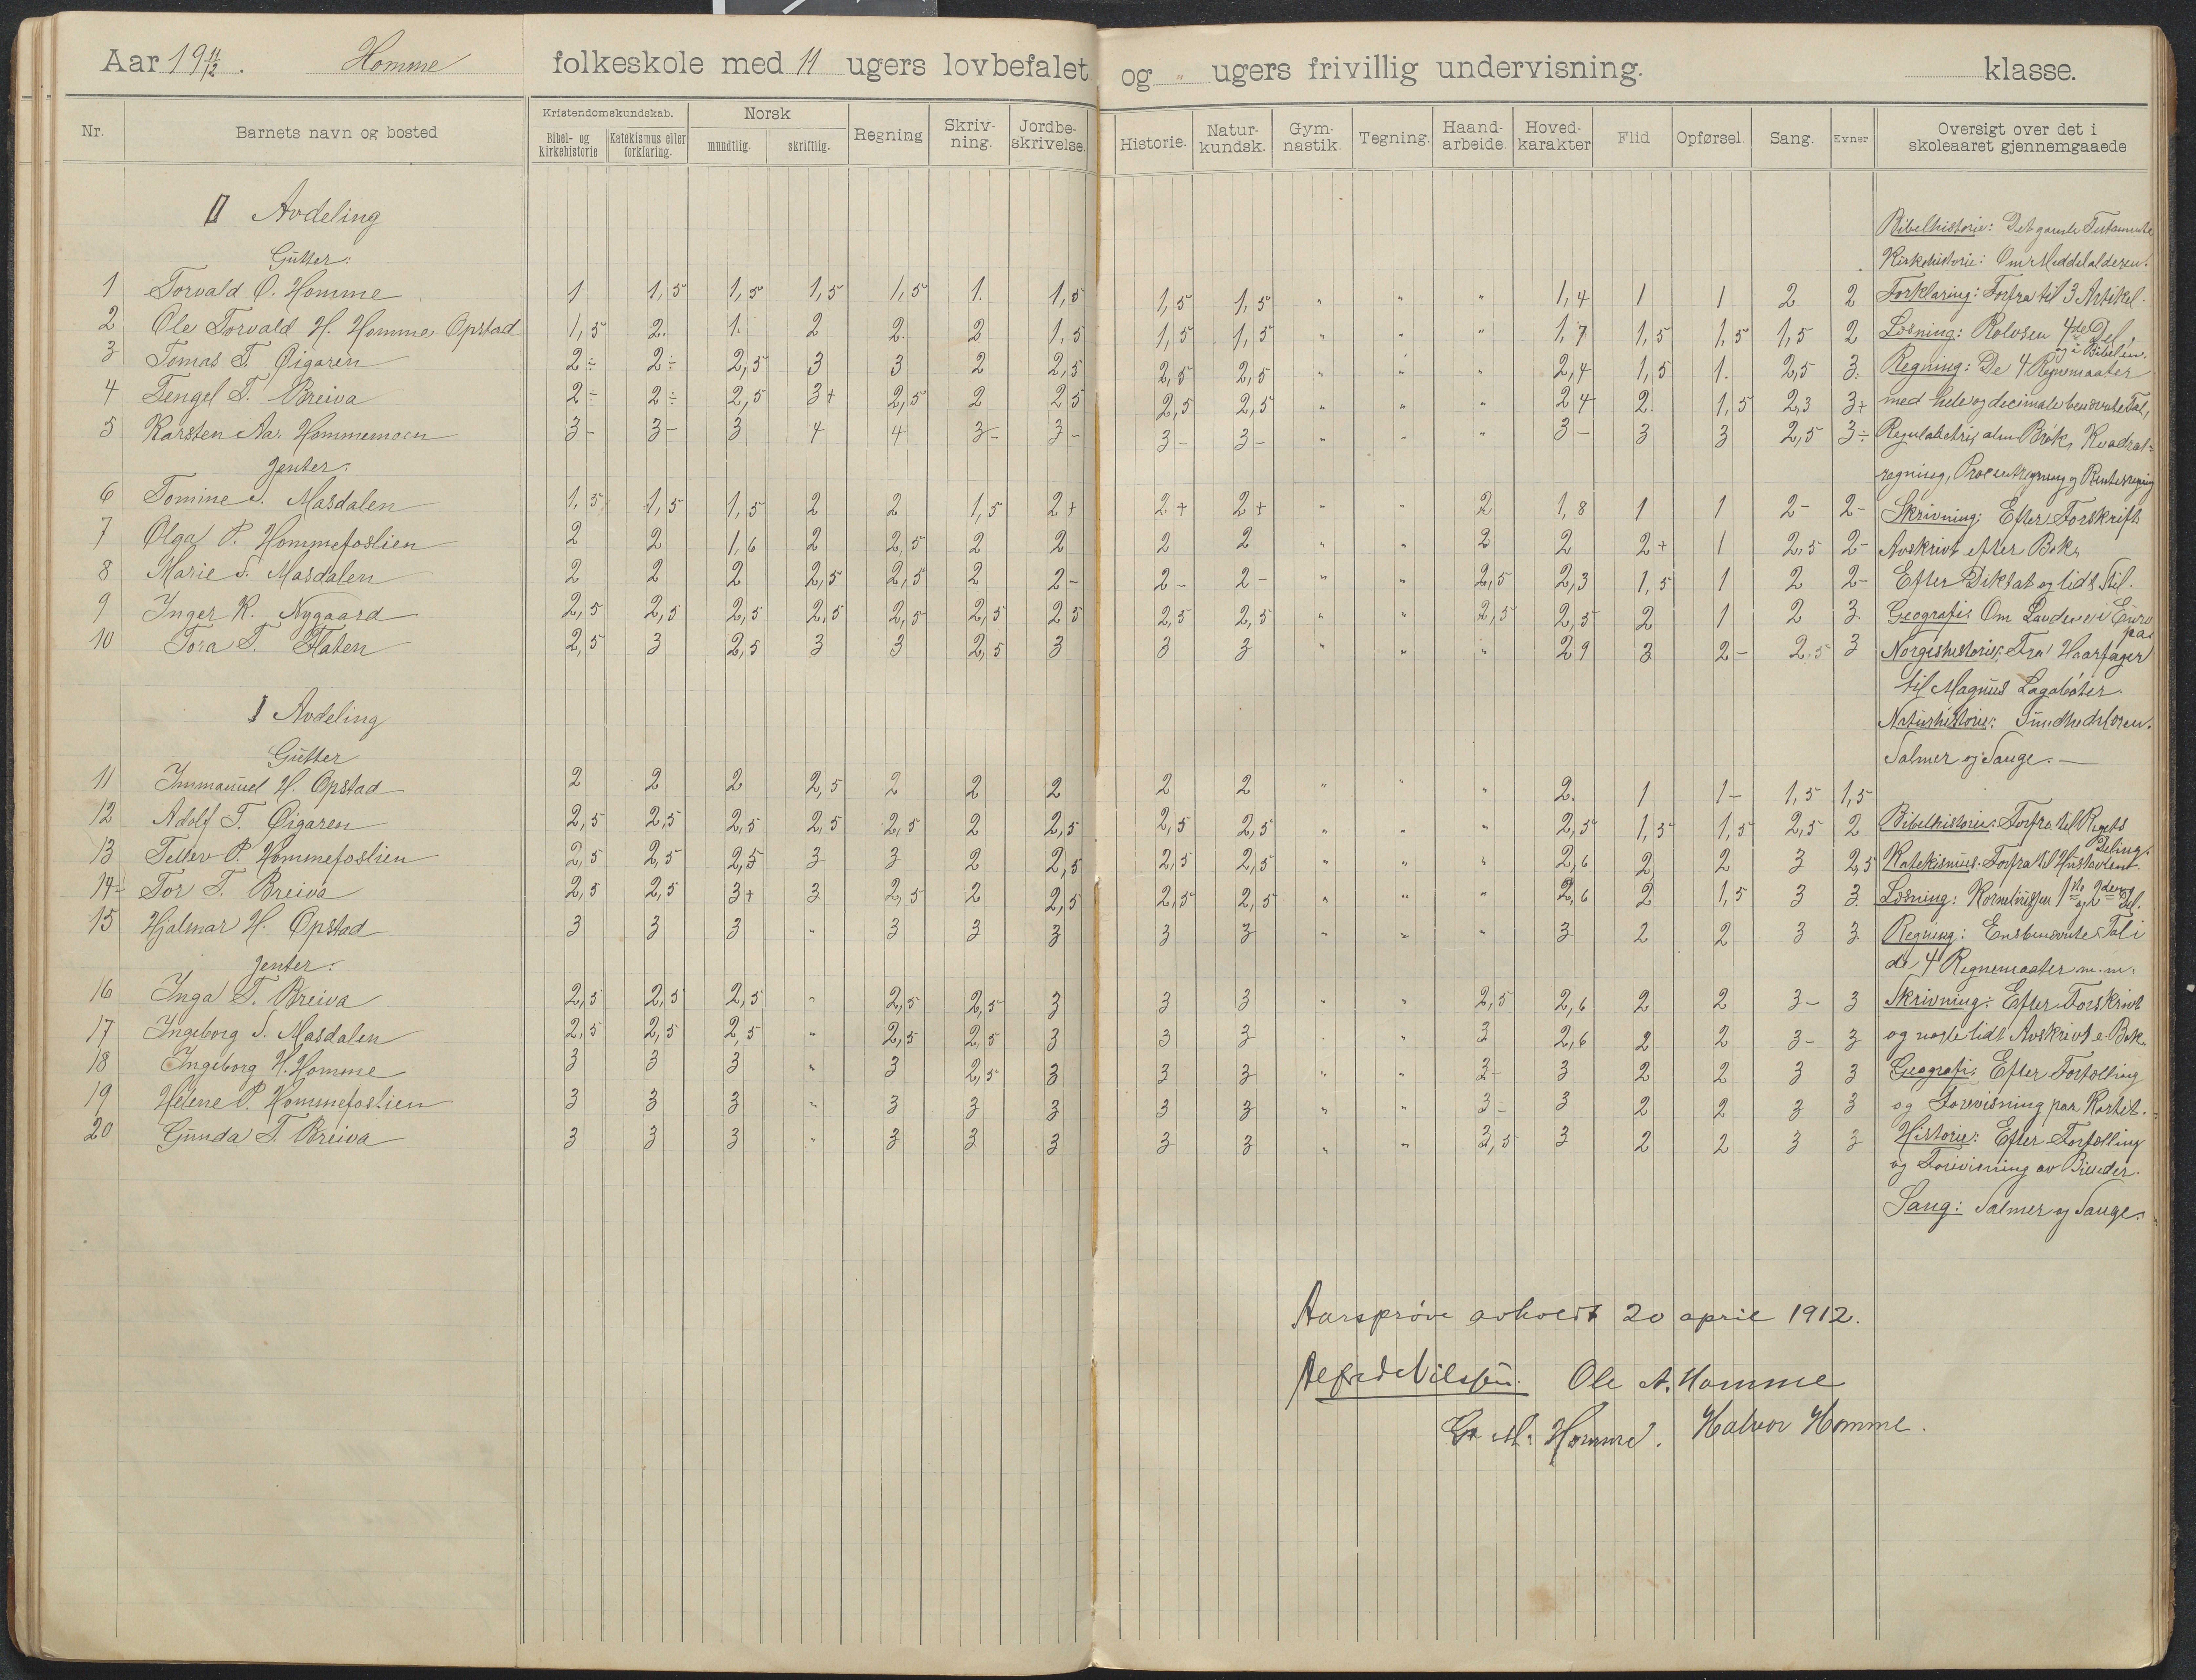 Aar 19 11/12. Homme folkeskole med 11 ugers lovbefalet og " ugers frivillig undervisning. klasse.
Nr. Barnets navn og bosted Kristendomskundskab. Bibel- og kirkehistorie Katekismus eller forklaring. Norsk mundtlig. skriftlig. Regning Skriv-ning. Jordbe-skrivelse. Historie. Natur-kundsk. Gym-nastik. Tegning. Haand-arbeide. Hoved-karakter Flid Opførsel. Sang. Evner Oversigt over det i skoleaaret gjennemgaaede
II Avdeling
Gutter:
1 Torvald O. Homme 1 1,5 1,5 1,5 1,5 1. 1,5 1,5 1,5 " " " 1,4 1 1 2 2
2 Ole Torvald H. Homme, Opstad 1,5 2. 1. 2 2. 2 1,5 1,5 1,5 " " " 1,7 1,5 1,5 1,5 2
3 Tomas T. Øigaren 2÷ 2÷ 2,5 3 3 2 2,5 2,5 2,5 " " " 2,4 1,5 1. 2,5 3.
4 Tengel T. Breiva 2÷ 2÷ 2,5 3+ 2,5 2 25 2,5 2,5 " " " 24 2. 1,5 2,3 3+
5 Karsten Aa. Hommemoen 3- 3- 3 4 4 3- 3- 3- 3- " " " 3- 3 3 2,5 3÷
Jenter:
6 Tomine S. Masdalen 1,5 1,5 1,5 2 2 1,5 2+ 2+ 2+ " " 2 1,8 1 1 2- 2-
7 Olga P. Hommefoslien 2 2 1,6 2 2,5 2 2 2 2 " " 2 2 2+ 1 2,5 2-
8 Marie S. Masdalen 2 2 2 2,5 2,5 2 2- 2- 2- " " 2,5 2,3 1,5 1 2 2-
9 Inger K. Nygaard 2,5 2,5 2,5 2,5 2,5 2,5 25 2,5 2,5 " " 2,5 2,5 2 1 2 3.
10 Tora T. Flaten 2,5 3 2,5 3 3 2,5 3 3 3 " " " 29 3 2- 2,5 3
I Avdeling
Gutter
11 Immanuel H. Opstad 2 2 2 2,5 2 2 2 2 2 " " " 2. 1 1- 1,5 1,5
12 Adolf T. Øigaren 2,5 2,5 2,5 2,5 2,5 2 2,5 2,5 2,5 " " " 2,5 1,5 1,5 2,5 2
13 Tellev P. Hommefoslien 2,5 2,5 2,5 3 3 2 2,5 2,5 2,5 " " " 2,6 2 2 3 2,5
14 Tor T. Breiva 2,5 2,5 3+ 3 2,5 2 2,5 2,5 2,5 " " " 2,6 2 1,5 3 3
15 Hjalmar H. Opstad 3 3 3 " 3 3 3 3 3 " " " 3 2 2 3 3
Jenter:
16 Inga T. Breiva 2,5 2,5 2,5 " 2,5 2,5 3 3 3 " " 2,5 2,6 2 2 3- 3
17 Ingeborg S. Masdalen 2,5 2,5 2,5 " 2,5 2,5 3 3 3 " " 3 2,6 2 2 3- 3
18 Ingeborg H. Homme 3 3 3 " 3 2,5 3 3 3 " " 3- 3 2 2 3 3
19 Helene P. Hommefoslien 3 3 3 " 3 3 3 3 3 " " 3- 3 2 2 3 3
20 Gunda T. Breiva 3 3 3 " 3 3 3 3 3 " " 3,5 3 2 2 3 3
Bibelhistorie: Det gamle Testamente
Kirkehistorie: Om Middelalderen.
Forklaring: Forfra til 3 Artikel.
Læsning: Rolvsen 4de Del
og i Bibelen.
Regning: De 4 Regnemaater
med hele og decimale benævnte Tal,
Reguladetri, alm Brøk, Kvadrat-
regning, Procentregning og Renteregning
Skrivning: Efter Forskrift
Avskrivt efter Bok,
Efter Diktat og lidt Stil.
Geografi: Om Landene i Euro
pa.
Norgeshistorie: Fra Haarfager
til Magnus Lagabøter.
Naturhistorie: Sundhedslæren.
Salmer og Sange.
Bibelhistorie: Forfra til Rigets
Deling.
Katekismus: Forfra til Hustavlen.
Læsning: 1ste og 2den Del.
Regning: Ensbenævnte Tal i
de 4 Regnemaater m.m.
Skrivning: Efter Forskrivt
og noste lidt Avskrivt e. Bok.
Geografi: Efter Fortælling
og Forevisning paa Kartet.
Historie: Efter Fortælling
og Forevisning av Billeder.
Sang: Salmer og Sange.
Aarsprøve avholdt 20 april 1912.
Alfred Nilssen. Ole A. Homme
G. M. Homme. Halvor Homme.